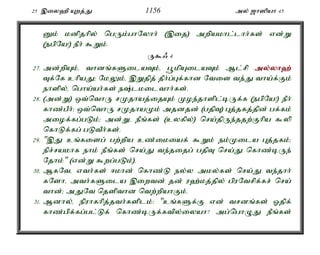 25 இலைஹி யுரத்து 1156 அல் ஜாஸியா 45
னும் மனிதரில் பெரும்பாலோர் (இதை) அறியமாட்டார்கள் என்று
(நபியே!) நீர் கூறும்.
ருகூஃ 4
27. அன்றியும், வானங்களுடையவும், பூமியுடையவும் ஆட்சி அல்லாஹ்
வுக்கே உரியது; மேலும், இறுதித் தீர்ப்புக்கான வேளை வந்து வாய்க்கும்
நாளில், பொய்யர்கள் நஷ்டமடைவார்கள்.
28. (அன்று) ஒவ்வொரு சமுதாயத்தையும் முழந்தாளிட்டிருக்க (நபியே!) நீர்
காண்பீர்; ஒவ்வொரு சமுதாயமும் அதனதன் (பதிவு) புத்தகத்தின் பக்கம்
அழைக்கப்படும்; அன்று, நீங்கள் (உலகில்) செய்திருந்ததற்குரிய கூலி
கொடுக்கப் படுவீர்கள்.
29. "இது உங்களைப் பற்றிய உண்மையைக் கூறும் நம்முடைய புத்தகம்;
நிச்சயமாக நாம் நீங்கள் செய்து வந்ததைப் பதிவு செய்து கொண்டிருந்
தோம்" (என்று கூறப்படும்).
30. ஆகவே, எவர்கள் ஈமான் கொண்டு நல்ல அமல்கள் செய்து வந்தார்
களோ, அவர்களுடைய இறைவன் தன் ரஹ்மத்தில் பிரவேசிக்கச் செய்
வான்; அதுவே தெளிவான வெற்றியாகும்.
31. ஆனால், நிராகரித்தவர்களிடம்: "உங்களுக்கு என் வசனங்கள் ஓதிக்
காண்பிக்கப்பட்டுக் கொண்டிருக்கவில்லையா? அப்பொழுது நீங்கள்